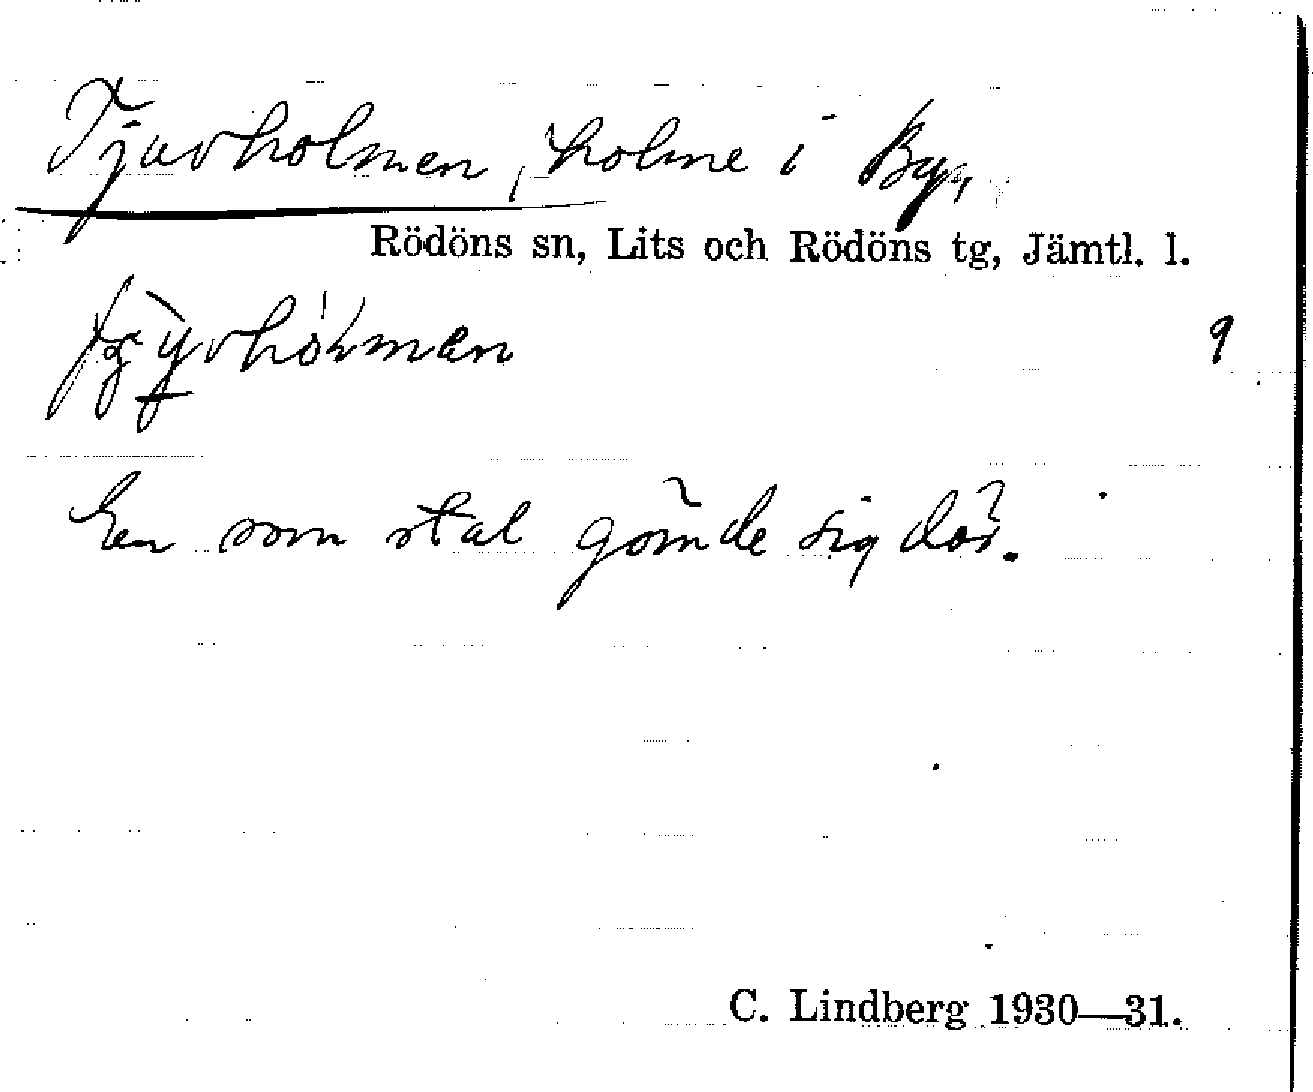 Tjuvholmen, holme i By,
Rödöns sn, Lits och Rödöns tg, Jämtl. l.
9
En som stal gömde sig där.
C. Lindberg 1930—31.